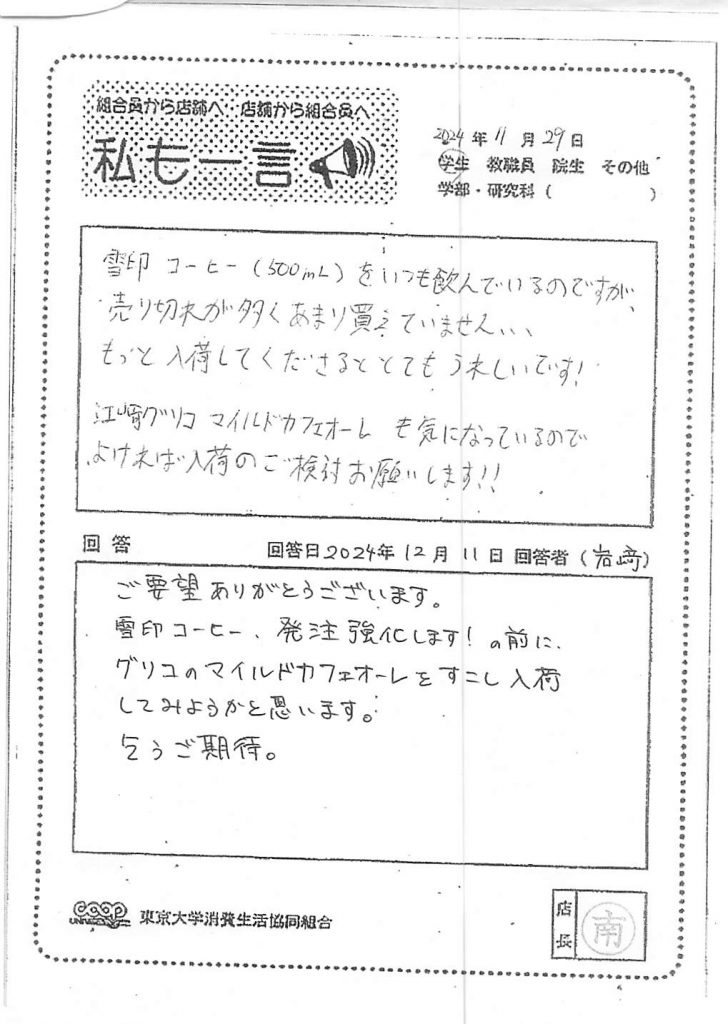 組合員から店舗へ・店舗から組合員へ
私も一言
2024年11月29日
学生 教職員 院生 その他
学部・研究科（ ）
雪印 コーヒー(500mL)をいつも飲んでいるのですが、
売り切れが多くあまり買えていません、、、
もっと入荷してくださるととてもうれしいです!
江崎グリコ マイルドカフェオーレ も気になっているので
よければ入荷のご検討お願いします!!
回答 回答日2024年12月11日 回答者（岩﨑）
ご要望ありがとうございます。
雪印コーヒー、発注強化します! の前に、
グリコのマイルドカフェオーレをすこし入荷
してみようかと思います。
乞うご期待。
coop
東京大学消費生活協同組合
店長
南